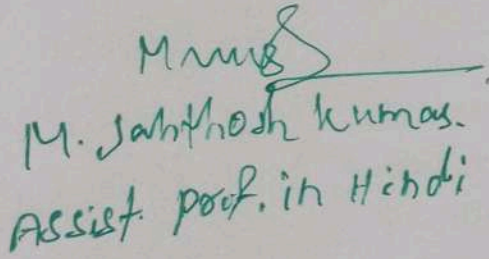 M. Sahthosh kumar.
Assist. prof. in Hindi